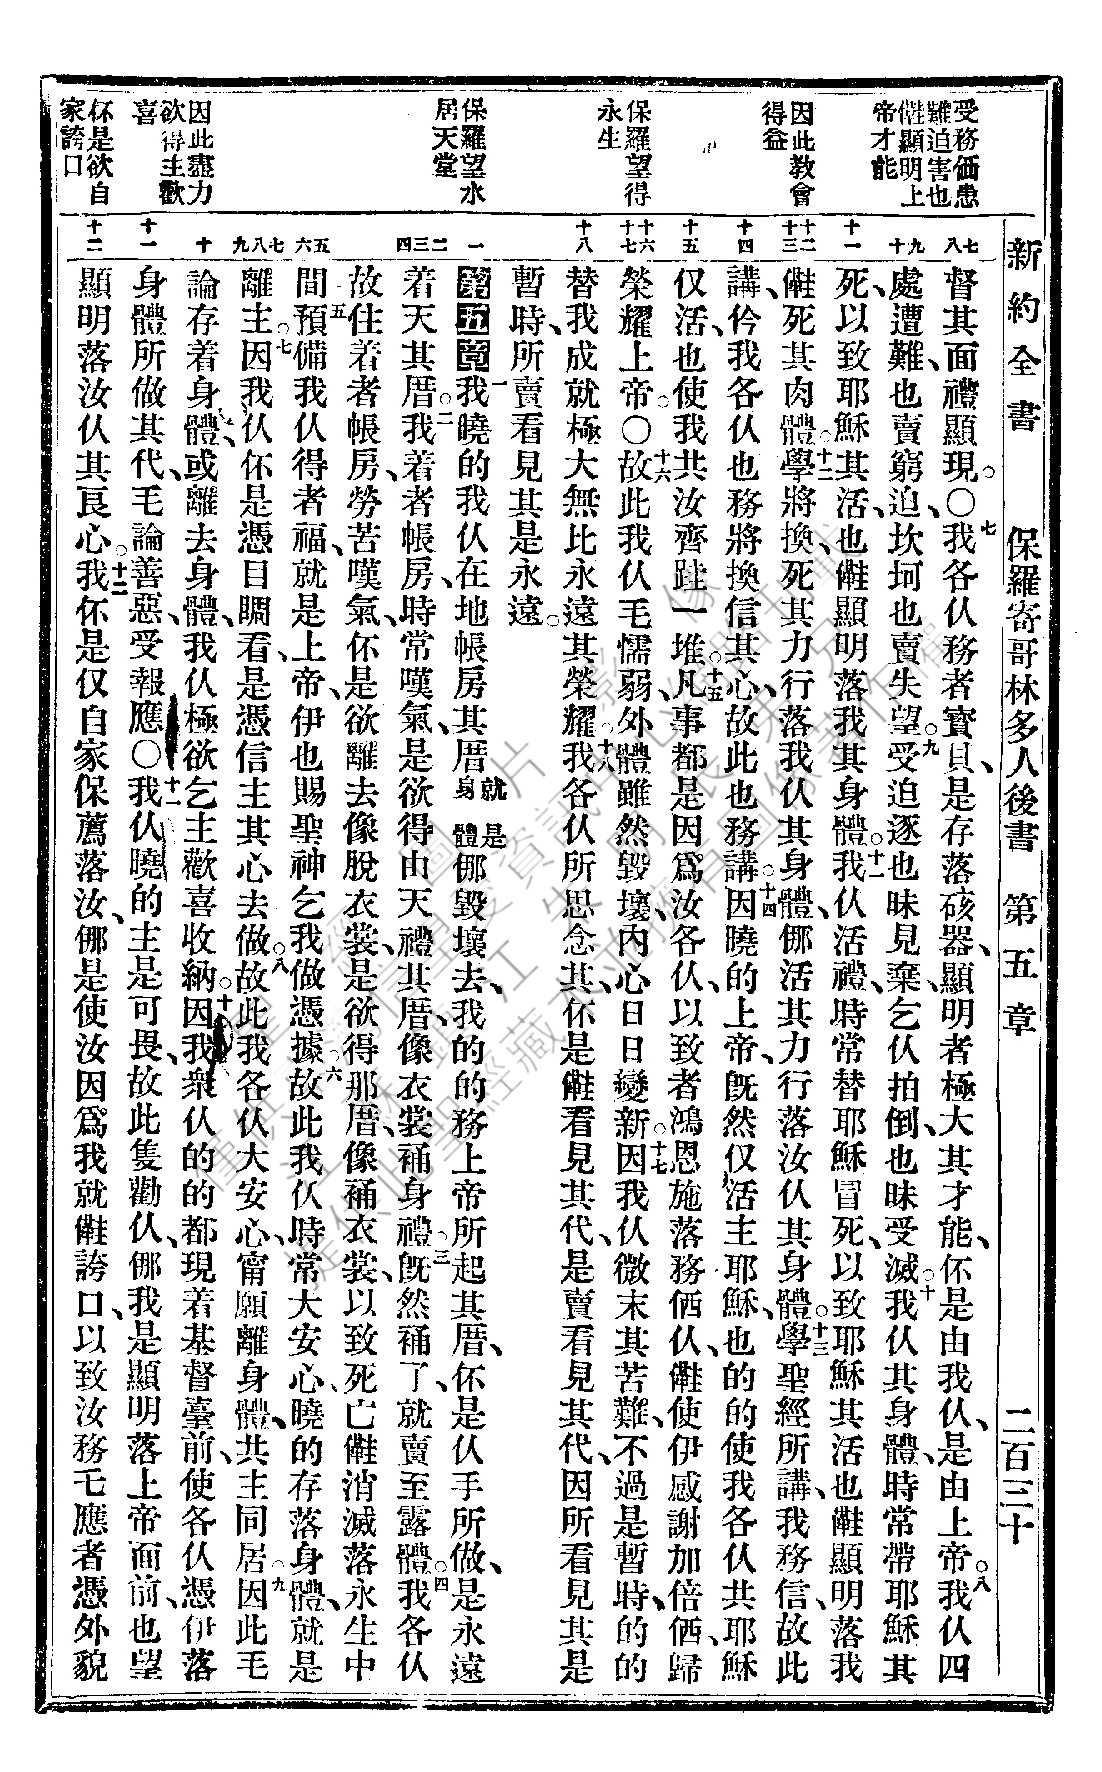 新約全書 保羅寄哥林多人後書 第五章 二百三十
受務価患
難迫害也
㑚顯明上
帝才能
因此教會
得益
保羅望得
永生
保羅望水
居天堂
因此盡力
欲得主歡
喜
伓是欲自
家誇口
七八
九十
十一
十二十三
十四
十五
十六十七
十八
一
二三四
五六
七八九
十
十一
十二
督其面禮顯現。〇七我各仈務者寶貝、是存落硋器、顯明者極大其才能、伓是由我仈、是由上帝。八我仈四
處遭難、也賣窮迫、坎坷也賣失望。九受迫逐也昧見棄、乞仈拍倒、也昧受滅。十我仈其身體、時常帶耶穌其
死、以致耶穌其活、也㑚顯明落我其身體。十一我仈活禮、時常替耶穌冒死、以致耶穌其活也㑚顯明落我
㑚死其肉體。十二學將換、死其力行落我仈其身體、㑚活其力行落汝仈其身體。十三學聖經所講、我務信、故此
講、仱我各仈也務將換信其心、故此也務講。十四因曉的上帝、旣然仅活主耶穌、也的的使我各仈共耶穌
仅活、也使我共汝齊跬一堆。十五凡事都是因爲汝各仈、以致者鴻恩施落務価仈、㑚使伊感謝加倍価、歸
榮耀上帝。〇十六故此我仈毛懦弱、外體雖然毀壞、內心日日變新。十七因我仈微末其苦難、不過是暫時、的的
替我成就極大無比永遠其榮耀。十八我各仈所思念其、伓是㑚看見其代、是賣看見其代、因所看見其是
暫時、所賣看見其是永遠。
第五章一我曉的我仈在地帳房其厝、就是身體㑚毀壞去、我的的務上帝所起其厝、伓是仈手所做、是永遠
着天其厝。二我着者帳房、時常嘆氣、是欲得由天禮其厝、像衣裳裲身禮。三旣然裲了、就賣至露體。四我各仈
故住着者帳房、勞苦嘆氣、伓是欲離去像脫衣裳、是欲得那厝、像裲衣裳、以致死亡㑚消滅落永生中
間。五預備我仈得者福、就是上帝、伊也賜聖神乞我做憑據。六故此我仈時常大安心、曉的存落身體、就是
離主。七因我仈伓是憑目睭看、是憑信主其心去做。八故此我各仈大安心、甯願離身體、共主同居。九因此毛
論存着身體、或離去身體、我仈極欲乞主歡喜收納。十因我衆仈的的都現着基督臺前、使各仈憑伊落
身體所做其代、毛論善惡、受報應。〇十一我仈曉的主是可畏、故此隻勸仈、㑚我是顯明落上帝面前、也望
顯明落汝仈其良心。十二我伓是仅自家保薦落汝、㑚是使汝因爲我就㑚誇口、以致汝務乇應者憑外貌